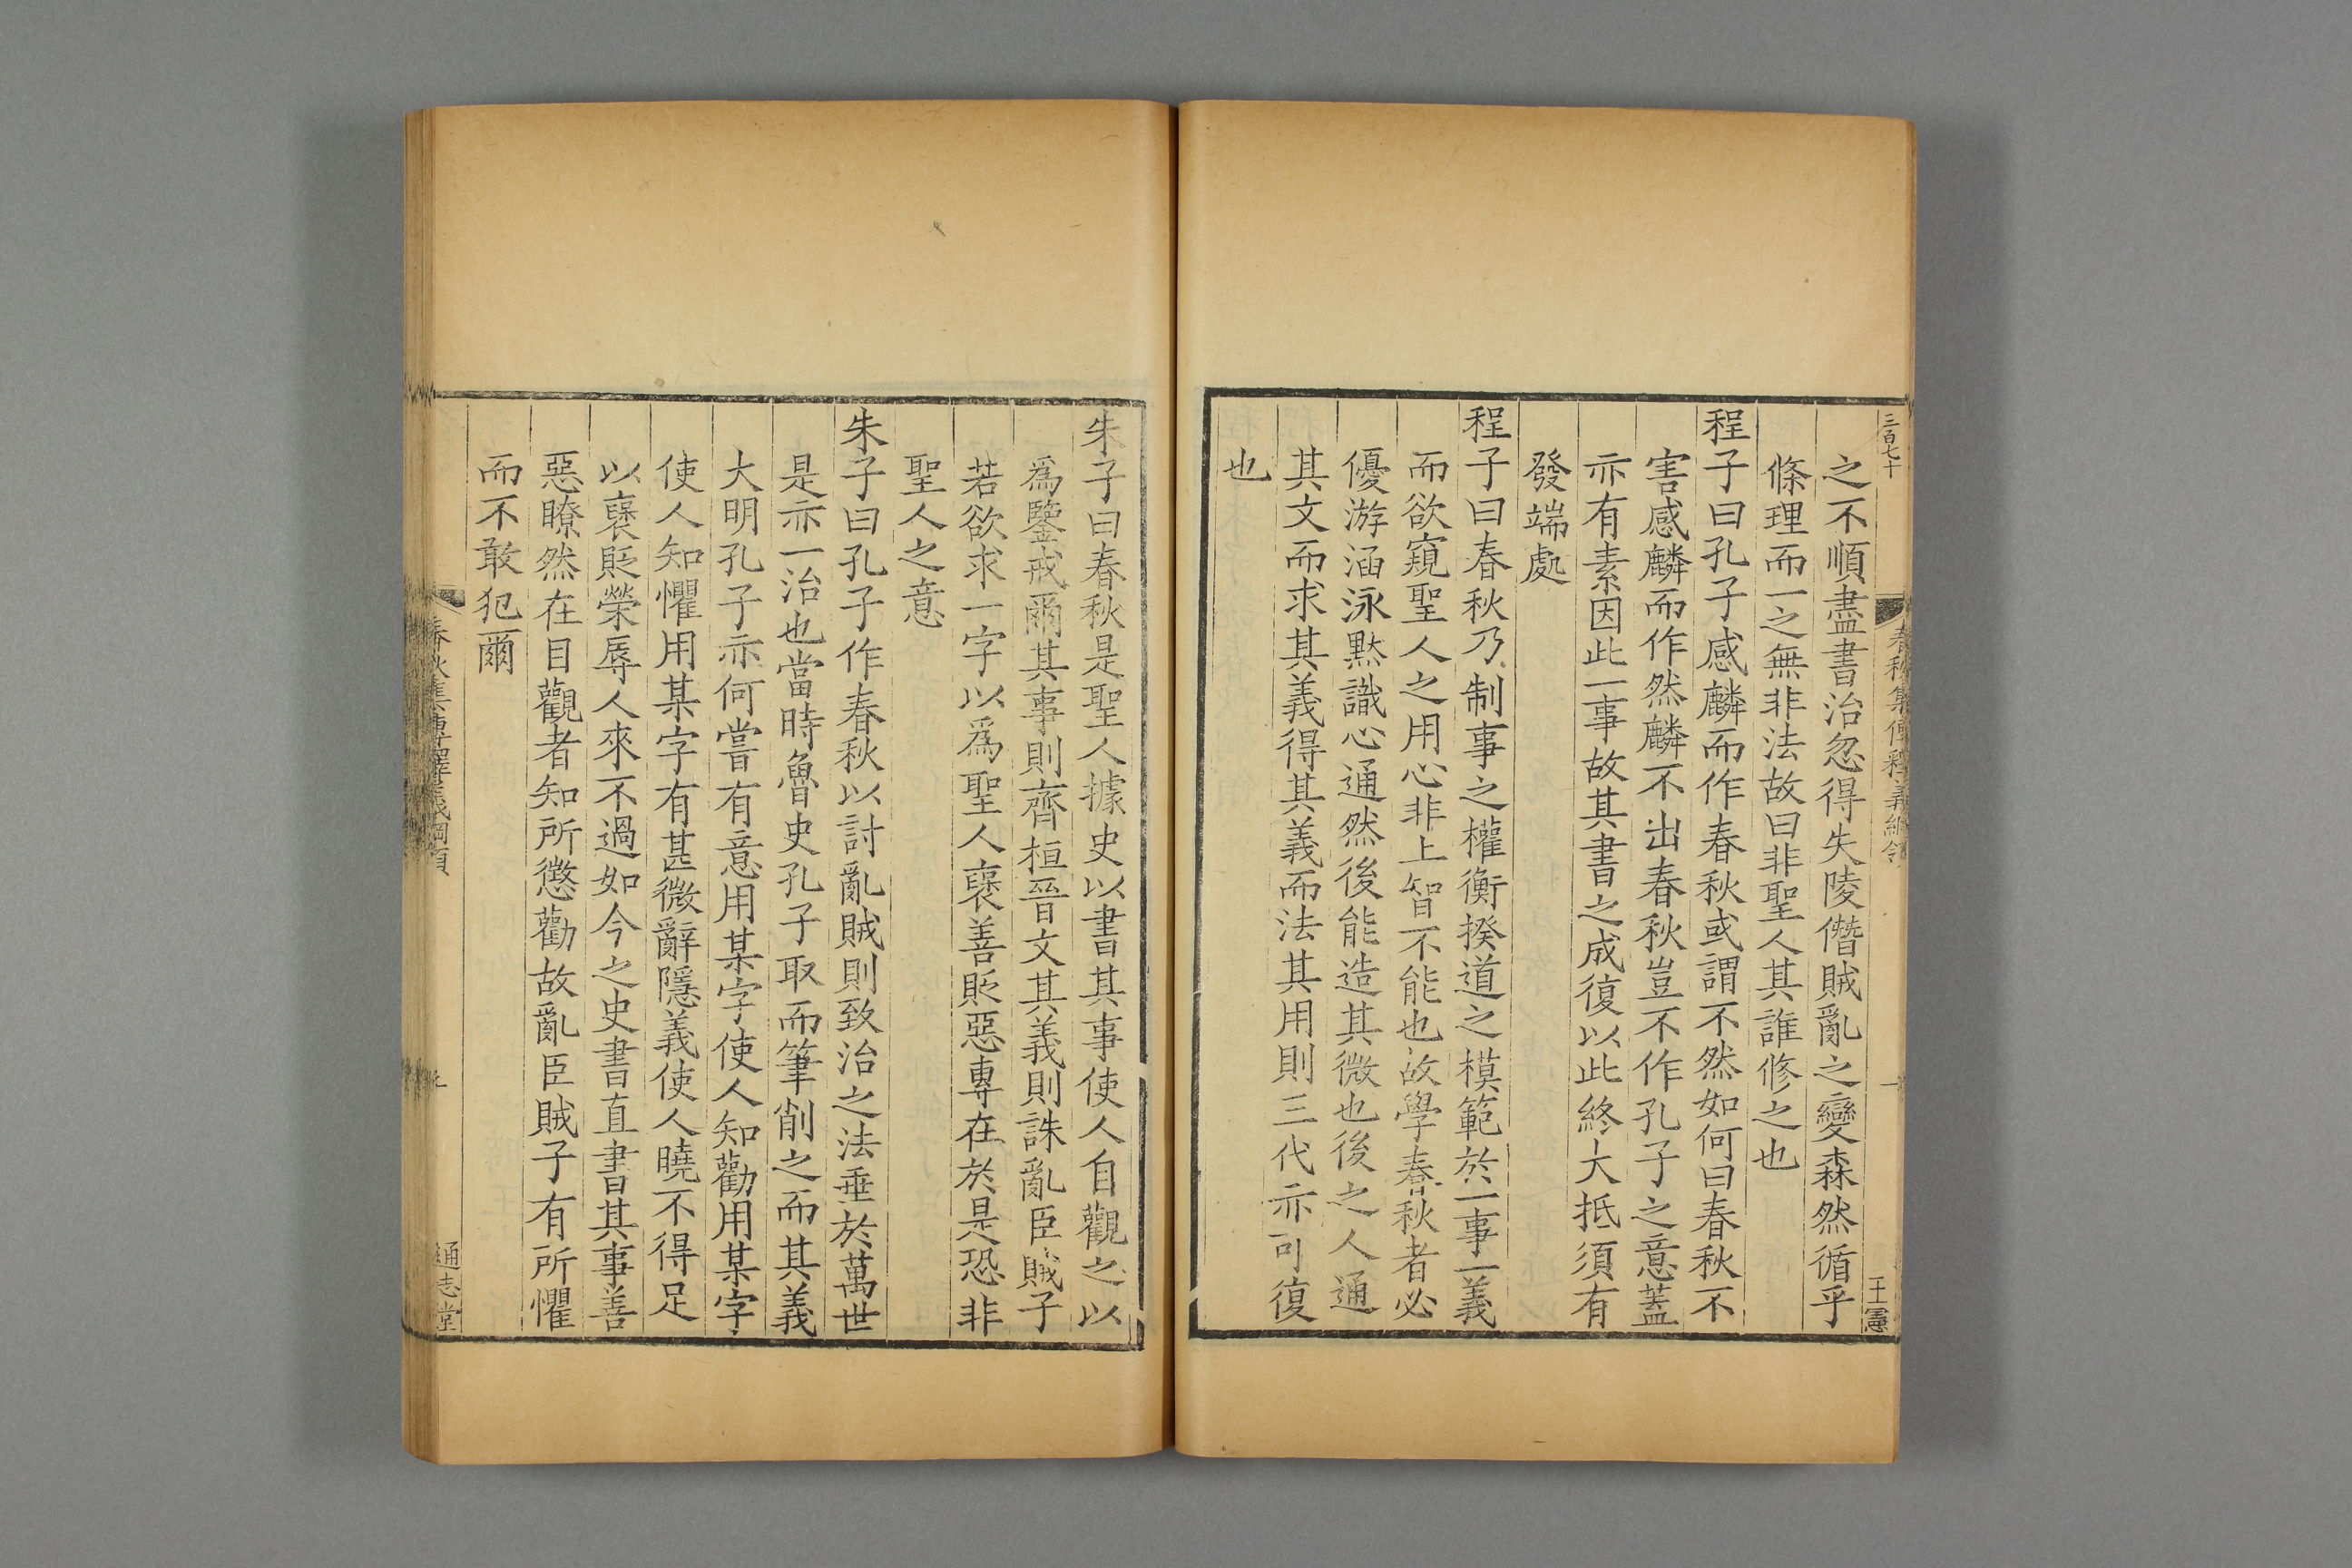 三百七十
春秋集傳釋義綱領
一
王憲
之不順盡書治忽得失陵僭賊亂之變森然循乎
條理而一之無非法故曰非聖人其誰修之也
程子曰孔子感麟而作春秋或謂不然如何曰春秋不
害感麟而作然麟不出春秋豈不作孔子之意蓋
亦有素因此一事故其書之成復以此終大抵須有
發端處
程子曰春秋乃制事之權衡揆道之模範於一事一義
而欲窺聖人之用心非上智不能也故學春秋者必
優游涵泳默識心通然後能造其微也後之人通
其文而求其義得其義而法其用則三代亦可復
也
朱子曰春秋是聖人據史以書其事使人自觀之以
爲鑒戒爾其事則齊桓晉文其義則誅亂臣賊子
若欲求一字以爲聖人襃善貶惡專在於是恐非
聖人之意
朱子曰孔子作春秋以討亂賊則致治之法垂於萬世
是亦一治也當時魯史孔子取而筆削之而其義
大明孔子亦何嘗有意用某字使人知勸用某字
使人知懼用某字有甚微辭隱義使人曉不得足
以襃貶榮辱人來不過如今之史書直書其事善
惡瞭然在目觀者知所懲勸故亂臣賊子有所懼
而不敢犯爾
春秋集傳釋義綱領
通志堂